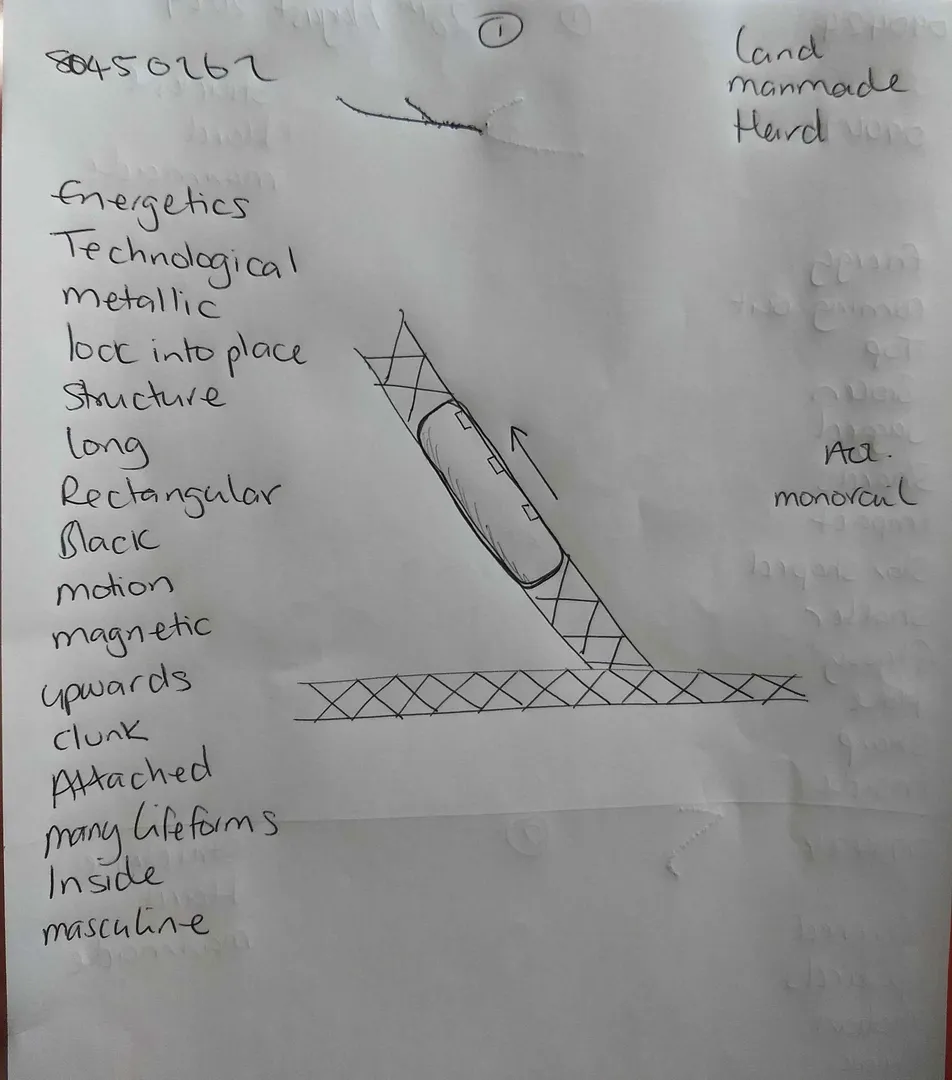 ①
80450262
Land
manmade
Hard
Energetics
Technological
metallic
lock into place
Structure
long
Rectangular
Black
motion
magnetic
upwards
clunk
Attached
many lifeforms
Inside
masculine
AOL.
monorail